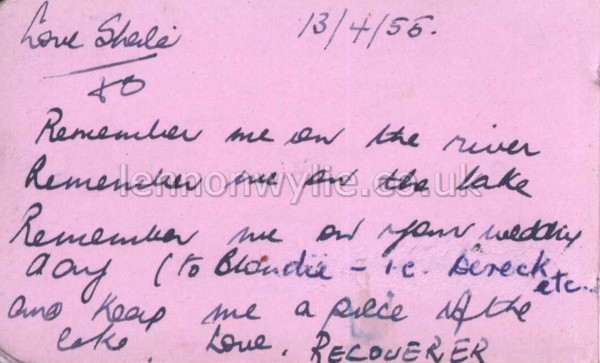 Love Sheila 13/4/55.
XO
Remember me on the river
Remember me on the lake
lennonwylie.co.uk
Remember me on your wedding
day (to Blondie - i.e. Dereck etc..
and keep me a piece of the
cake. Love, RECOVERER